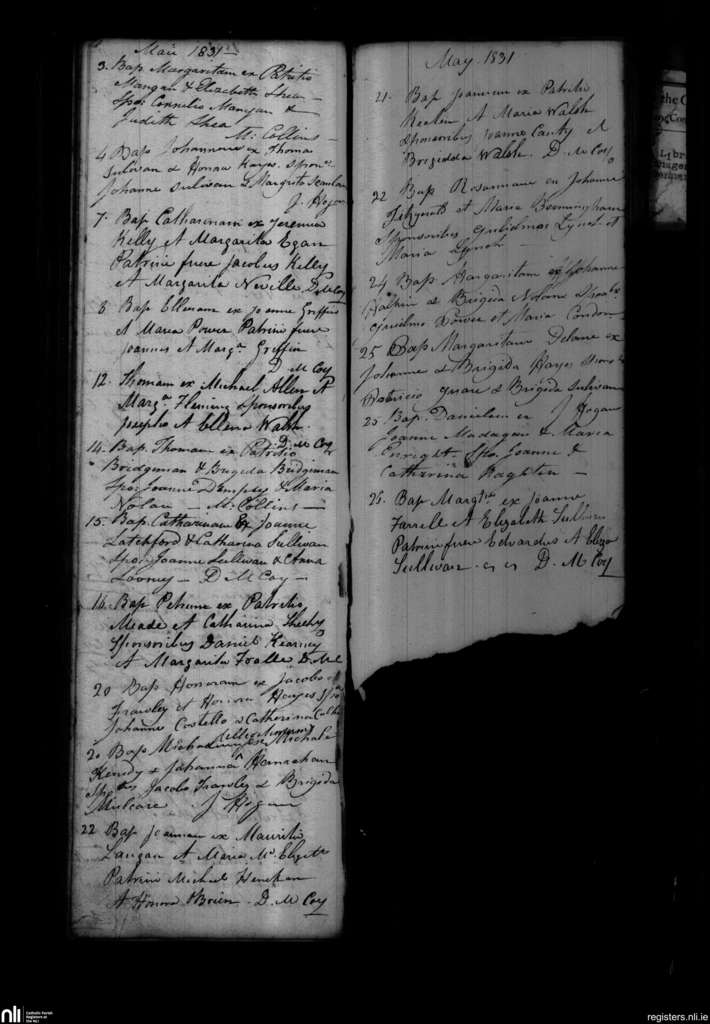 Maii 1831
3. Bap Margaritam ex Patritio
Mangan & Elizabeth Shea
Spo: Cornelio Mangan &
Judith Shea
M: Collins
4 Bap Johannem ex Thoma
Sulivan & Honora Hayes. Spon
Johanne Sulivan & Margrita
J. Hogan
7. Bap Catharinam ex Jeremia
Kelly et Margarita Egan
Patrini fuere Jacobus Kelly
et Margarita Neville D McCoy
8 Bap Ellenam ex Joanne Griffin
et Maria Power Patrini fuere
Joannes et Marga Griffin
D McCoy
12. Thomam ex Michael Allen et
Marga Fleming Sponsoribus
Josepho et Ellena Walsh.
D. McCoy
14. Bap. Thomam ex Patritio
Bridgeman & Brigeda Bridgeman
Spo: Joanne Dempsy & Maria
Nolan M: Collins
15. Bap. Catharinam Ex Joanne
Latchford & Catharina Sullivan
Spo: Joanne Sullivan & Anna
Looney D McCoy
16. Bap Petrum ex Patritio
Meade et Catharina Sheehy
Sponsoribus Daniel Kearney
et Margarita Toolle D. McC
20 Bap Honoram ex Jacobo
Frawley et Honora Hayes Spo
Johanne Costello & Catherina
20 Bap Michaelem ex Michale
Kenedy & Johanna Hanrahan
Jacobo Frawley & Brigeda
Mulcare. J Hogan
22 Bap Joannam ex Mauritio
Langan et Maria
Patrini Michael Henehan
et Honora OBrien. D. McCoy
May 1831
21. Bap Joannam ex Patritio
Meelan et Maria Walsh
Sponsoribus Joanne Canty et
Brigidda Walsh. D. McCoy
22 Bap Rosannam ex Johanne
Fitzgerald et Maria Bermingham
Sponsoribus Gulielmo Lynch et
Maria Lynch
24 Bap. Margaritam ex Johanne
Halpin & Brigeda Spon
Gulielmo Power et Maria Condron
25 Bap Margaritam Delane ex
Johanne & Brigida Hayes Spon
Patricio & Brigida Sulivan
J Hogan
25 Bap. Danielem ex
Joanne Madagan & Maria
Enright Spo. Joanne &
Catharina Naghten
26. Bap Margtm ex Joanne
Farrell et Elizabeth Sullivan
Patrini fuere Edvardus et Eliza
Sullivan D. McCoy
the C
Libr
nli
Catholic Parish
Registers at
the NLI
registers.nli.ie